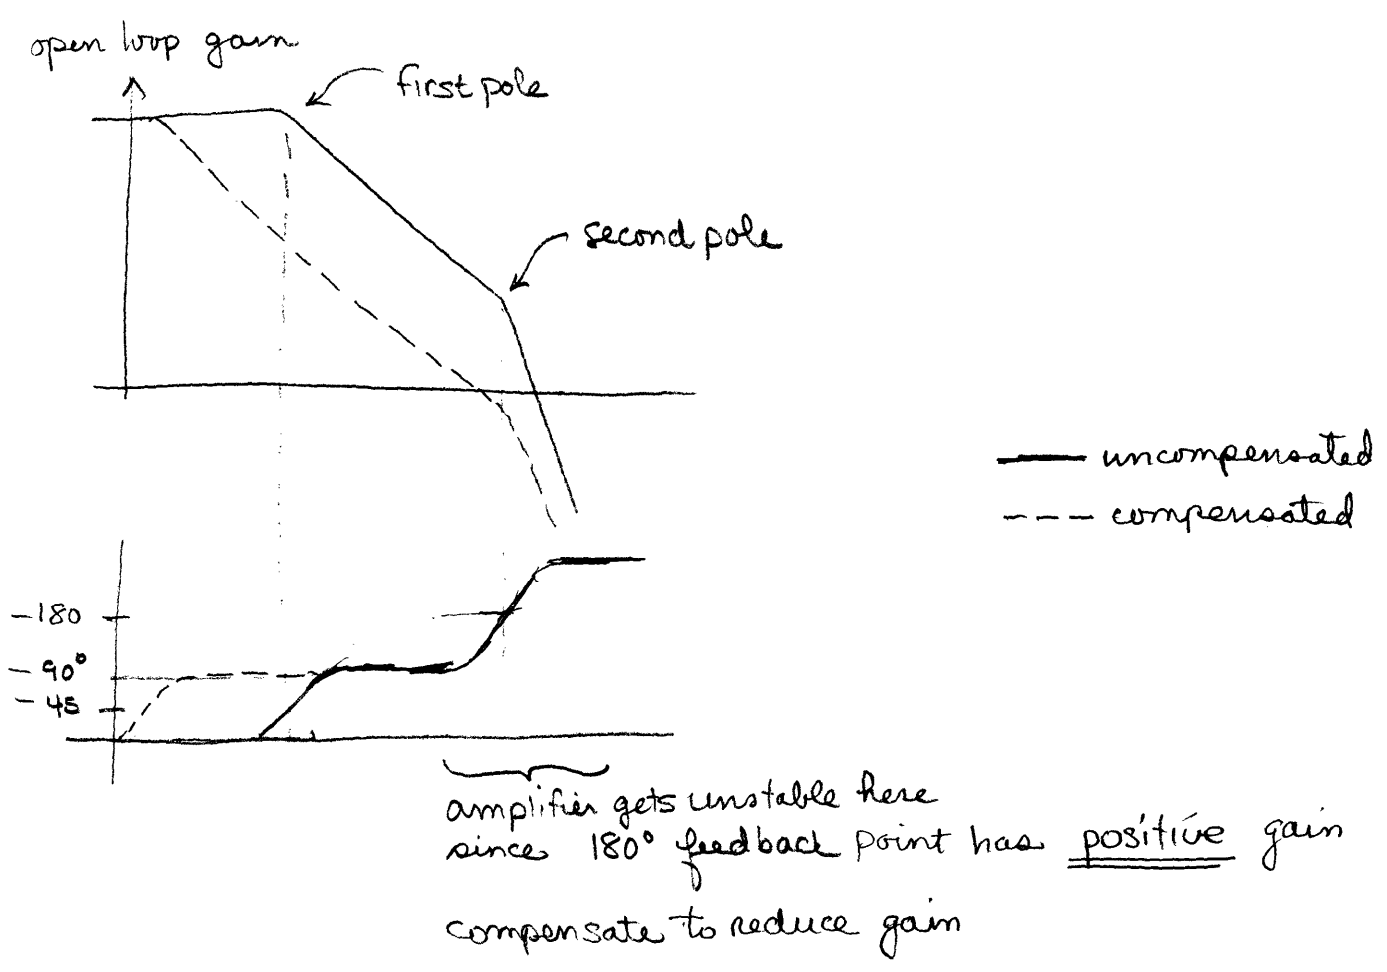 open loop gain
first pole
second pole
uncompensated
compensated
-180
-90°
-45
amplifier gets unstable here
since 180° feedback point has positive gain
compensate to reduce gain